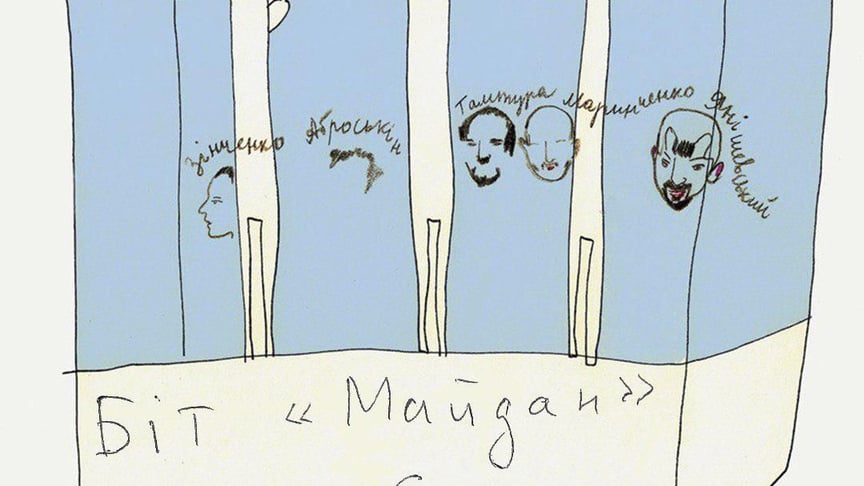 Зінченко
Аброськін
Гамжура
Маринченко
Янішевський
Біт «Майдан»